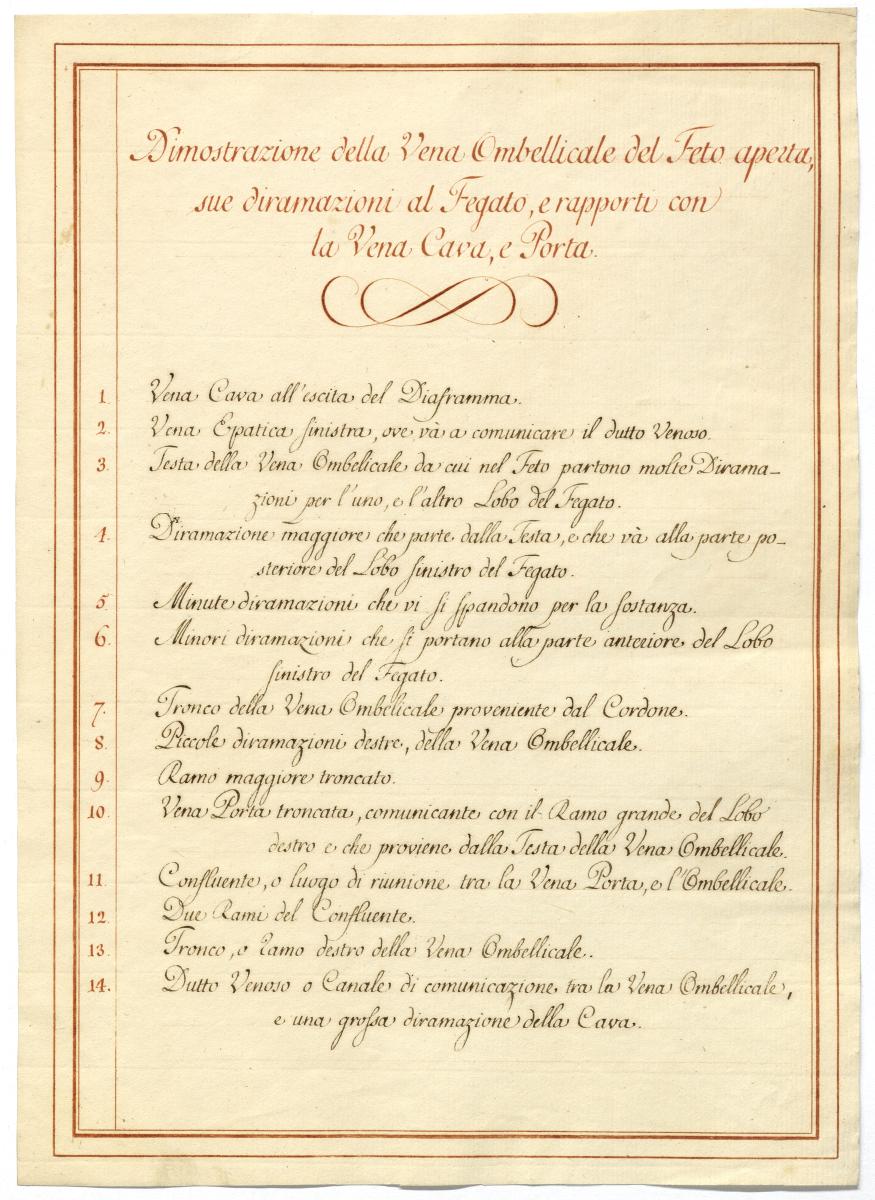 Dimostrazione della Vena Ombellicale del Feto aperta,
sue diramazioni al Fegato, e rapporti con
la Vena Cava, e Porta.
1. Vena Cava all'escita del Diaframma.
2. Vena Epatica sinistra, ove và a comunicare il dutto Venoso.
3. Testa della Vena Ombelicale da cui nel Feto partono molte Dirama-
zioni per l'uno, e l'altro Lobo del Fegato.
4. Diramazione maggiore che parte dalla Testa, e che và alla parte po-
steriore del Lobo sinistro del Fegato.
5. Minute diramazioni che vi si spandono per la sostanza.
6. Minori diramazioni che si portano alla parte anteriore del Lobo
sinistro del Fegato.
7. Tronco della Vena Ombelicale proveniente dal Cordone.
8. Piccole diramazioni destre, della Vena Ombellicale.
9. Ramo maggiore troncato.
10. Vena Porta troncata, comunicante con il Ramo grande del Lobo
destro e che proviene dalla Testa della Vena Ombellicale.
11. Confluente, o luogo di riunione tra la Vena Porta, e l'Ombellicale.
12. Due Rami del Confluente.
13. Tronco, o Ramo destro della Vena Ombellicale.
14. Dutto Venoso o Canale di comunicazione tra la Vena Ombellicale,
e una grossa diramazione della Cava.